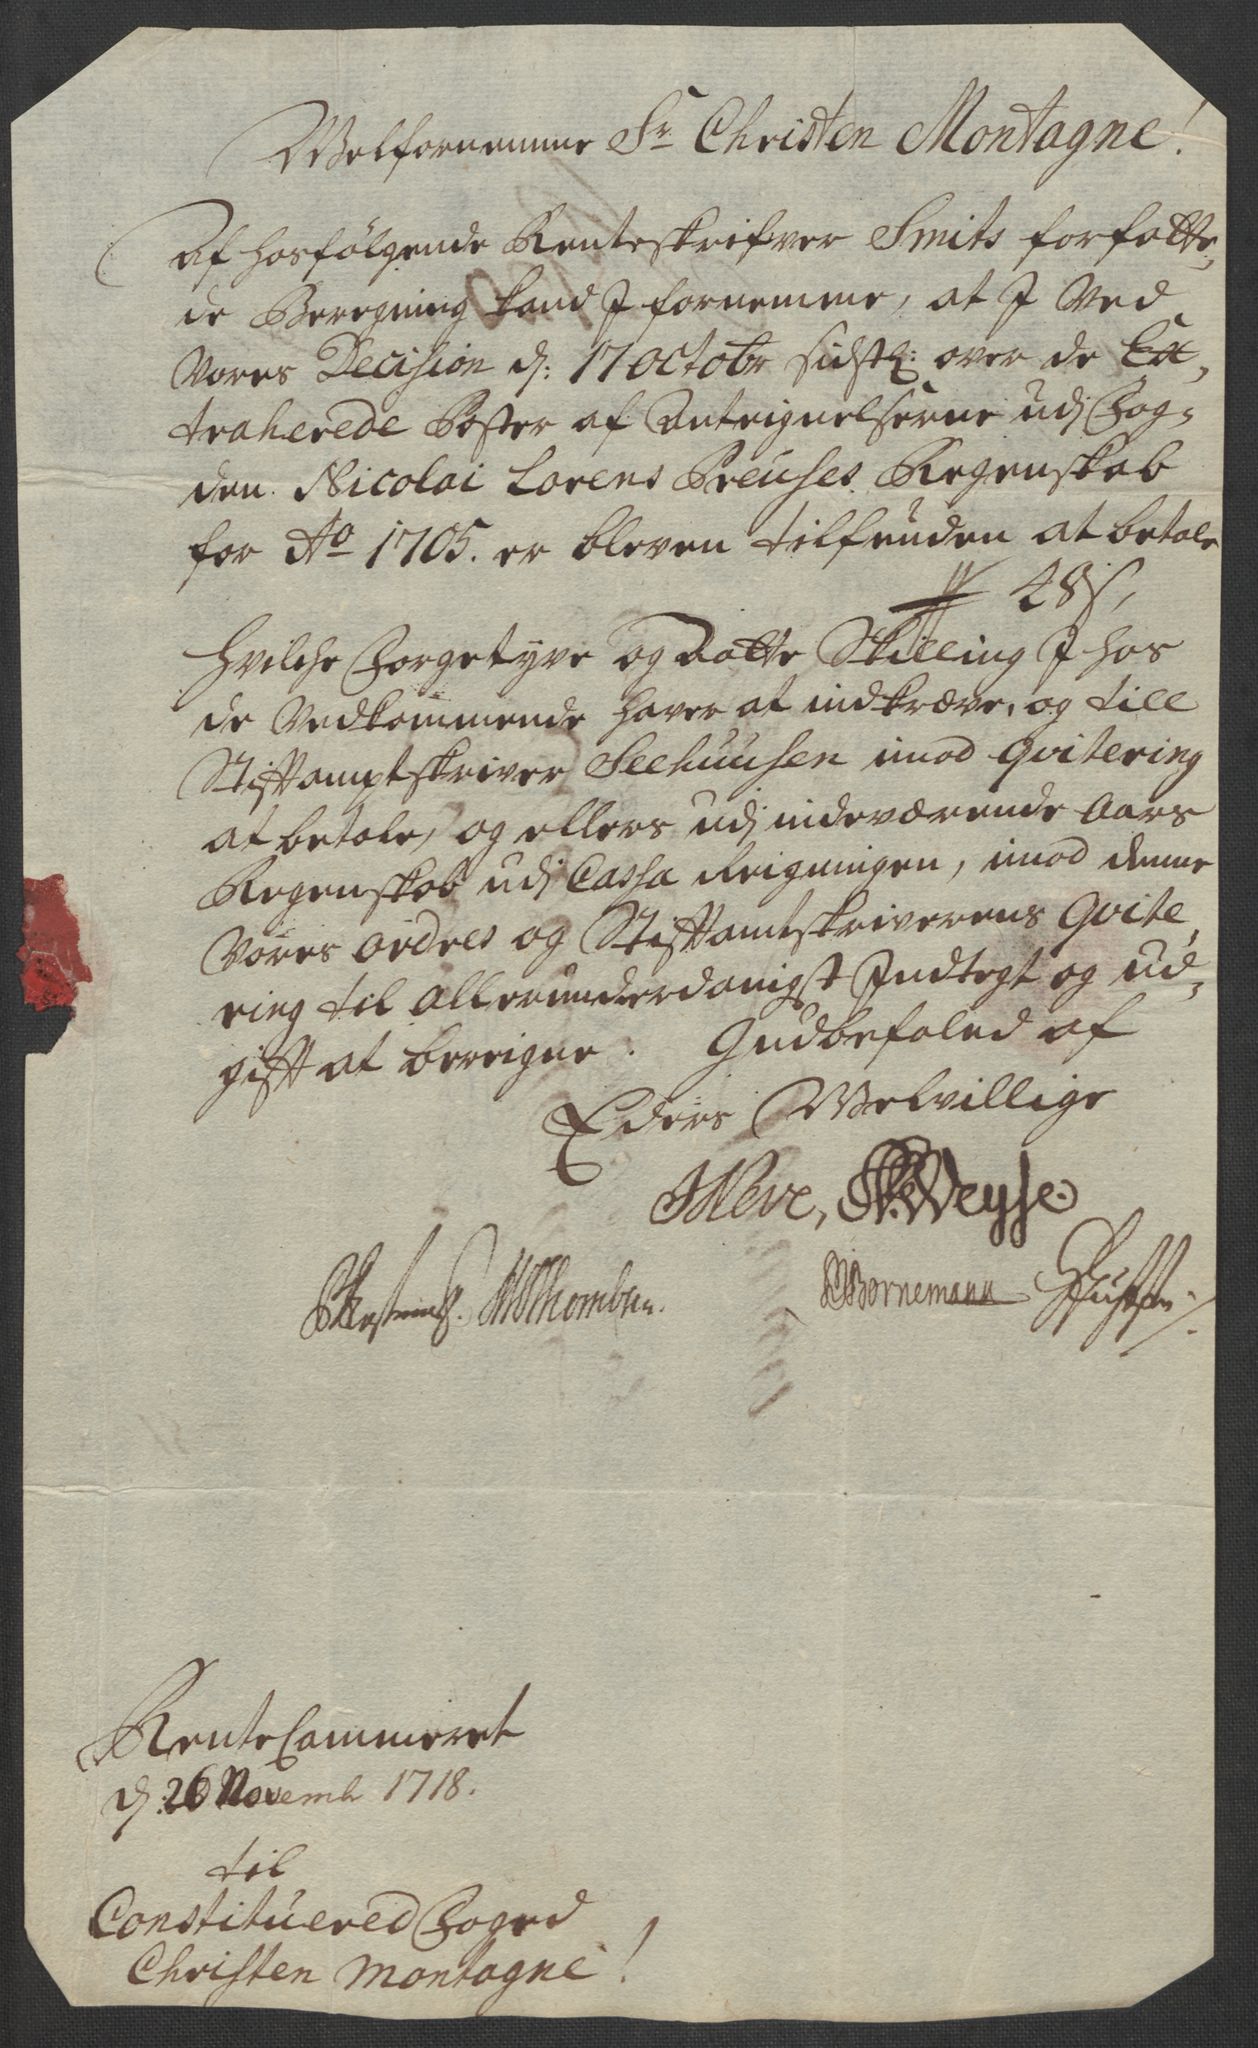 Welfornemme Sr. Christen Montagne!
Af hosfølgende Renteskrifver Smits forfatte,
de Beregning kand I fornemme, at I Ved
Vores Decision d: 17 Octobr sidstl: over de Ex,
traherede Poster af Antegnelserne udj Fog=
den Nicolai Lorens Preuses Regenskab
for Ao 1705. er bleven tilfunden at betale
48 s,
HvilcheFørgetyve og Aatte Skilling I hos
de Vedkommende haver at indkræve, og till
Stiftamptskriver Seehuusen imod Qvitering
at betale, og ellers udj indeværende Aars
Regenskab udj Cassa Reigningen, imod denne
Vores ordres og Stiftamtskriverens Qvite,
ring til Allerunderdanigst Indtegt og Ud=
gift at bereigne. Gudbefaled af
Eders Welvillige
JWeve, Weyse
Thombsen. Bornemann
RenteCammeret
d: 26 Novemb 1718.
til
Constituered Foged
Christen Montagne!